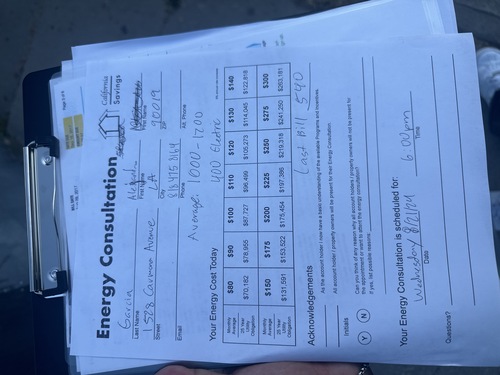 BILL DATE
Page 3 of 6
Energy Consultation
California
Savings
Garcia Alejandra
Last Name First Name First Name
1528 Carmona Avenue LA 90019
Street City ZIP
818 475 8164
Email Phone Alt. Phone
Average: 1000-1700
Your Energy Cost Today 400 Electric
Monthly Average $80 $90 $100 $110 $120 $130 $140
25 Year Utility Obligation $70,182 $78,955 $87,727 $96,499 $105,273 $114,045 $122,818
Monthly Average $150 $175 $200 $225 $250 $275 $300
25 Year Utility Obligation $131,591 $153,522 $175,454 $197,386 $219,318 $241,250 $263,181
Last Bill 540
Acknowledgements
As the account holder I now have a basic understanding of the available Programs and Incentives.
All account holder / property owners will be present for their Energy Consultation.
Initials
Y N
Can you think of any reason why all account holders / property owners will not be present for
the appointment or want to attend the energy consultation?
If yes, list possible reasons:
Your Energy Consultation is scheduled for:
Wednesday 8/21/24 6:00pm
Date Time
Questions?